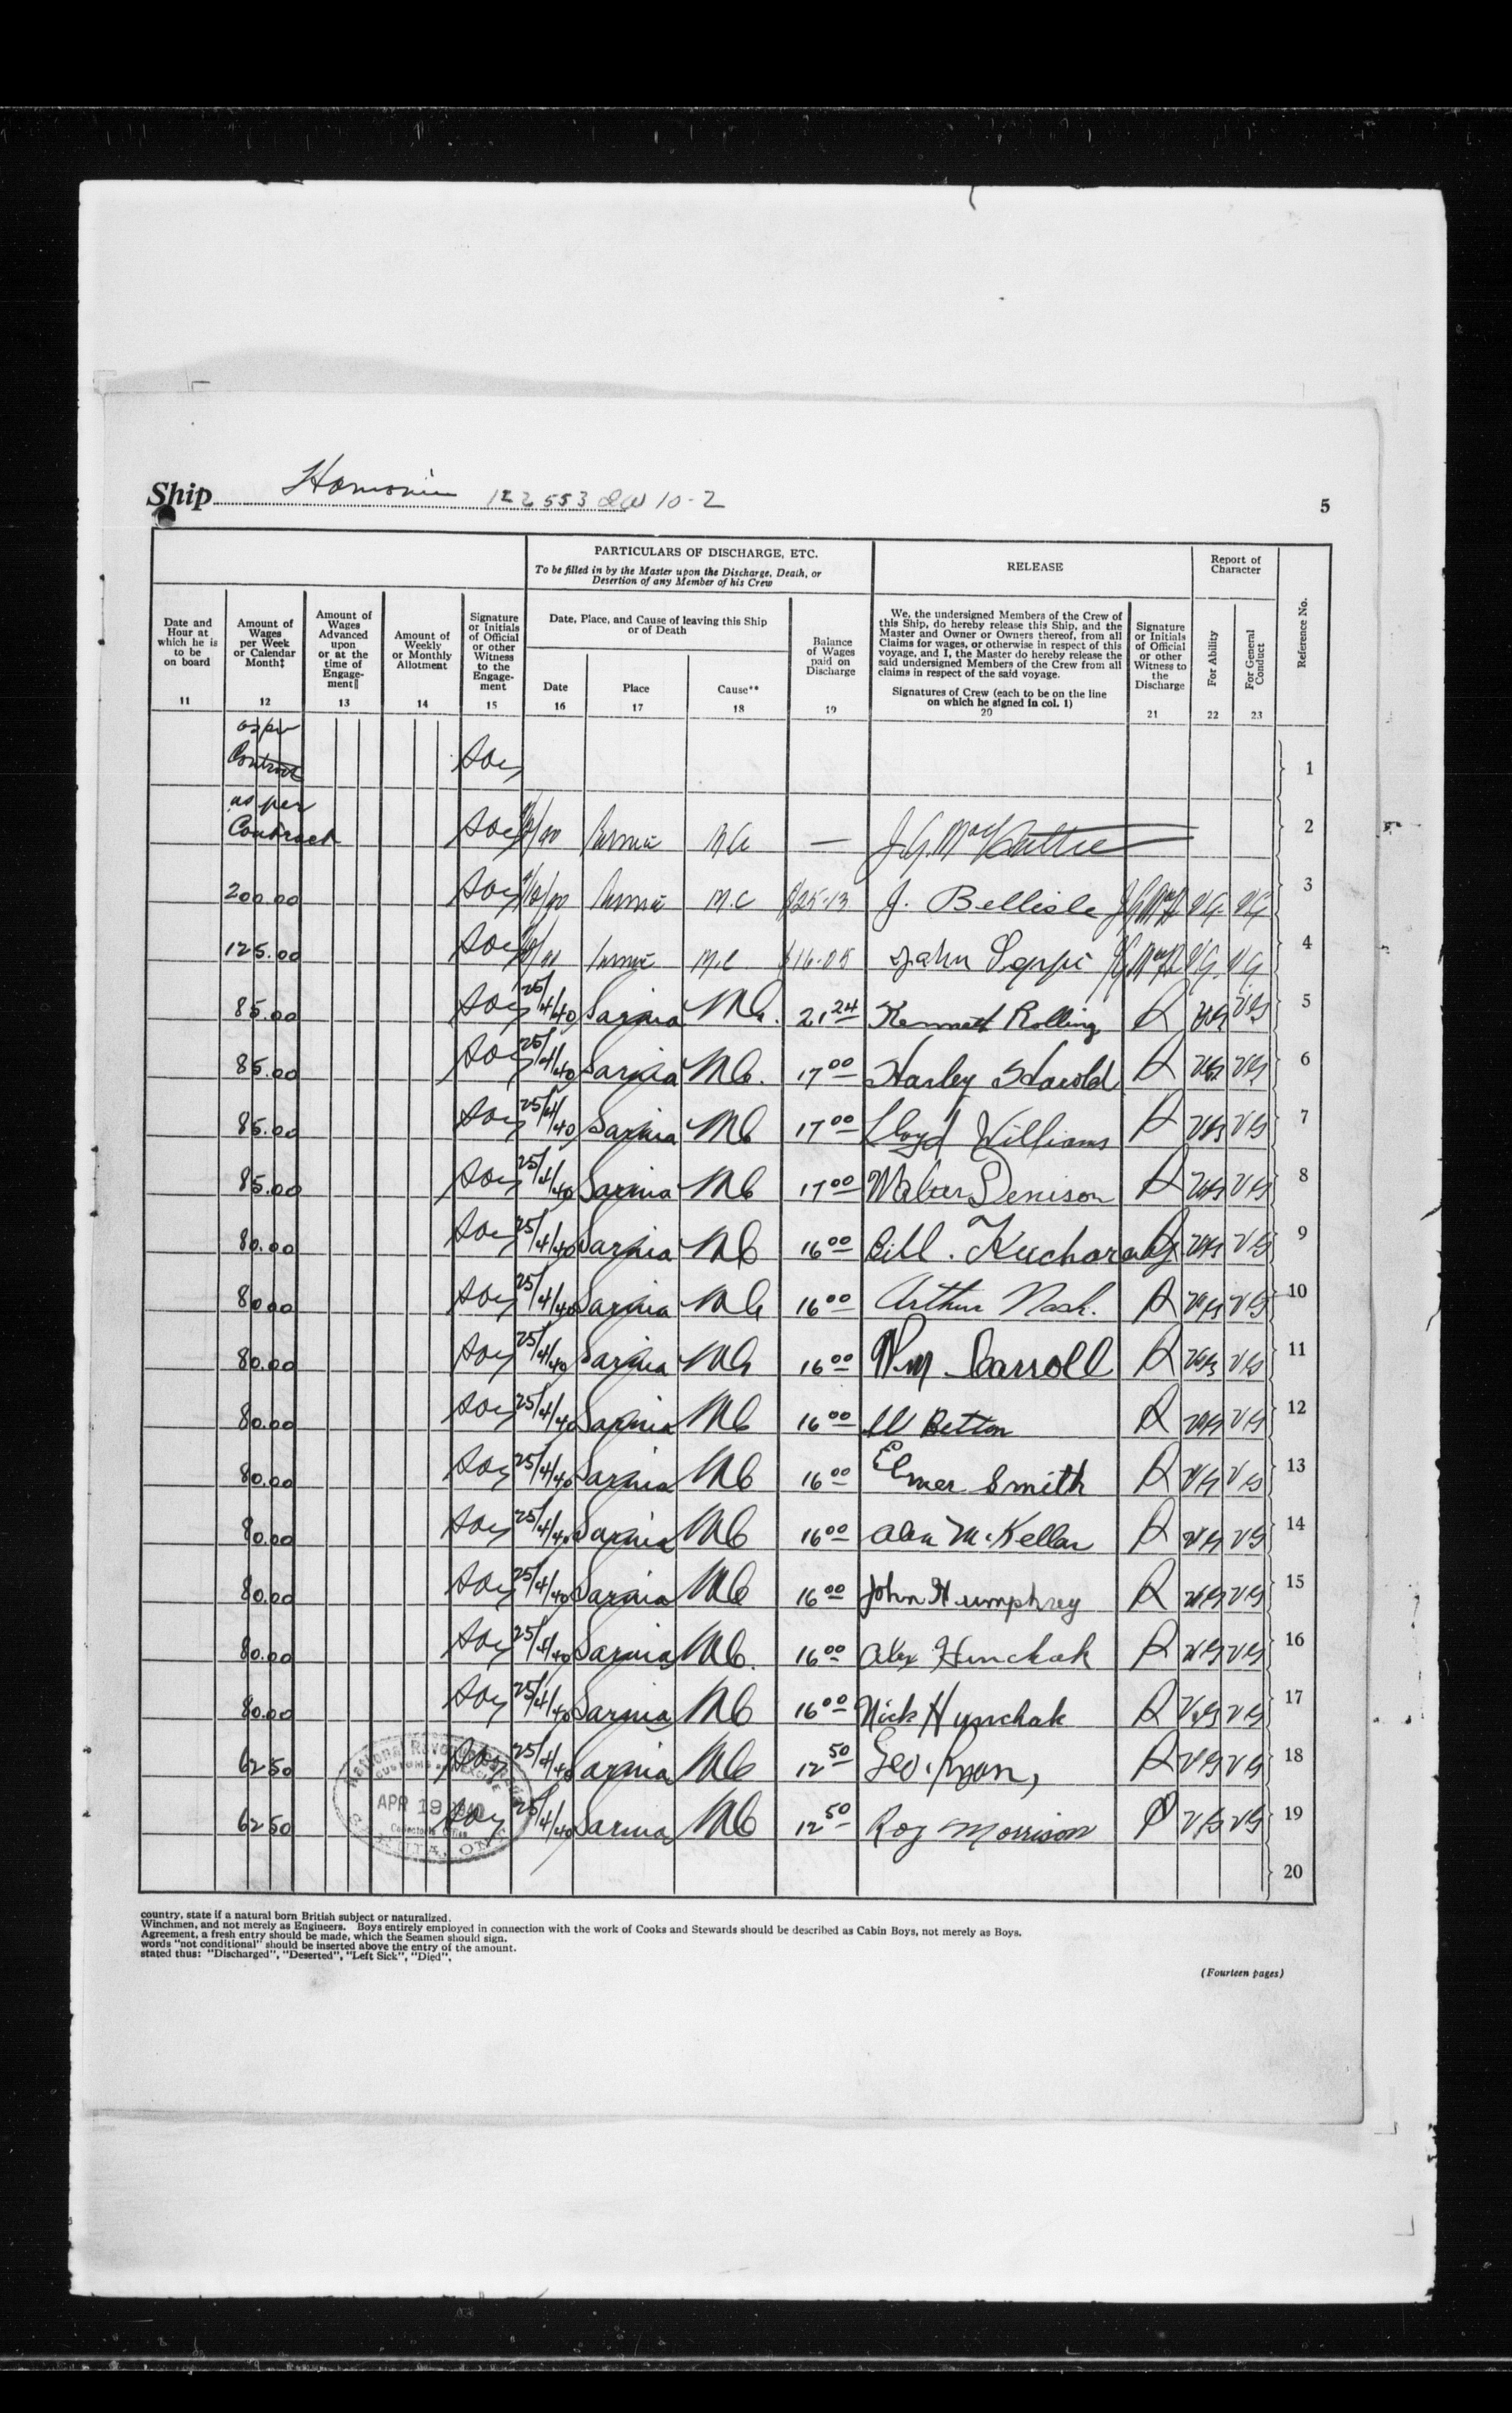 Ship Hamonic 122553 10-2
5
PARTICULARS OF DISCHARGE, ETC.
To be filled in by the Master upon the Discharge, Death, or
Desertion of any Member of his Crew
RELEASE
Report of
Character
Reference No.
Date and
Hour at
which he is
to be
on board
11
Amount of
Wages
per Week
or Calendar
Month‡
12
Amount of
Wages
Advanced
upon
or at the
time of
Engage-
ment||
13
Amount of
Weekly
or Monthly
Allotment
14
Signature
or Initials
of Official
or other
Witness
to the
Engage-
ment
15
Date, Place, and Cause of leaving this Ship
or of Death
Date
16
Place
17
Cause**
18
Balance
of Wages
paid on
Discharge
19
We, the undersigned Members of the Crew of
this Ship, do hereby release this Ship, and the
Master and Owner or Owners thereof, from all
Claims for wages, or otherwise in respect of this
voyage, and I, the Master do hereby release the
said undersigned Members of the Crew from all
claims in respect of the said voyage.
Signatures of Crew (each to be on the line
on which he signed in col. 1)
20
Signature
or Initials
of Official
or other
Witness to
the
Discharge
21
For Ability
22
For General
Conduct
23
as per
Contract 1
as per
Contract Sarnia M.C. — 2
200.00 Sarnia M.C $25.13 J. Bellisle V.G. V.G. 3
125.00 Sarnia M.C $16.05 John V.G. V.G. 4
85.00 25/4/40 Sarnia MC. 21 24 Kenneth Rolling VG VG 5
85.00 25/4/40 Sarnia MC. 17 00 Harley Harold VG VG 6
85.00 25/4/40 Sarnia MC 17 00 Lloyd Williams VG VG 7
85.00 25/4/40 Sarnia MC 17 00 Walter Denison VG VG 8
80.00 25/4/40 Sarnia MC 16 00 Bill. VG VG 9
80.00 25/4/40 Sarnia MC 16 00 Arthur Nash. VG VG 10
80.00 25/4/40 Sarnia MC 16 00 Wm Carroll VG VG 11
80.00 25/4/40 Sarnia MC 16 00 W Betton VG VG 12
80.00 25/4/40 Sarnia MC 16 00 Elmer Smith VG VG 13
80.00 25/4/40 Sarnia MC 16 00 Alex McKellar VG VG 14
80.00 25/4/40 Sarnia MC 16 00 John Humphrey VG VG 15
80.00 25/4/40 Sarnia MC. 16 00 Alex Hunchak VG VG 16
80.00 25/4/40 Sarnia MC 16 00 Nick Hunchak VG VG 17
62.50 25/4/40 Sarnia MC 12 50 Geo. Ryan, VG VG 18
62.50 25/4/40 Sarnia MC 12 50 Roy Morrison VG VG 19
20
APR 19 1940
country, state if a natural born British subject or naturalized.
Winchmen, and not merely as Engineers. Boys entirely employed in connection with the work of Cooks and Stewards should be described as Cabin Boys, not merely as Boys.
Agreement, a fresh entry should be made, which the Seamen should sign.
words "not conditional" should be inserted above the entry of the amount.
stated thus: "Discharged", "Deserted", "Left Sick", "Died",
(Fourteen pages)